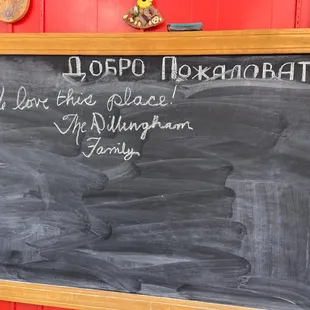 Добро Пожаловат
e love this place!
The Dillingham
Family